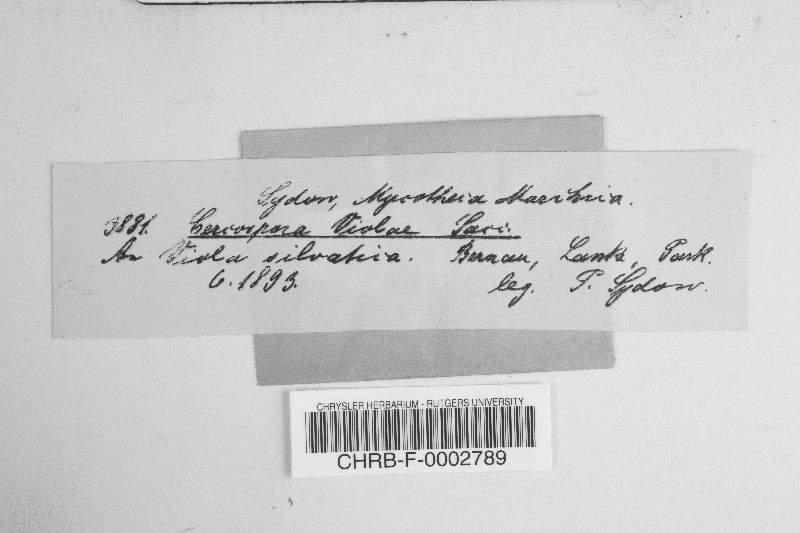 Sydow, Mycotheca Marchica.
3881. Cercospora Violae Sacc.
An Viola silvatica. Bernau, Lanke, Park.
6.1893. leg. P. Sydow.
CHRYSLER HERBARIUM - RUTGERS UNIVERSITY
CHRB-F-0002789